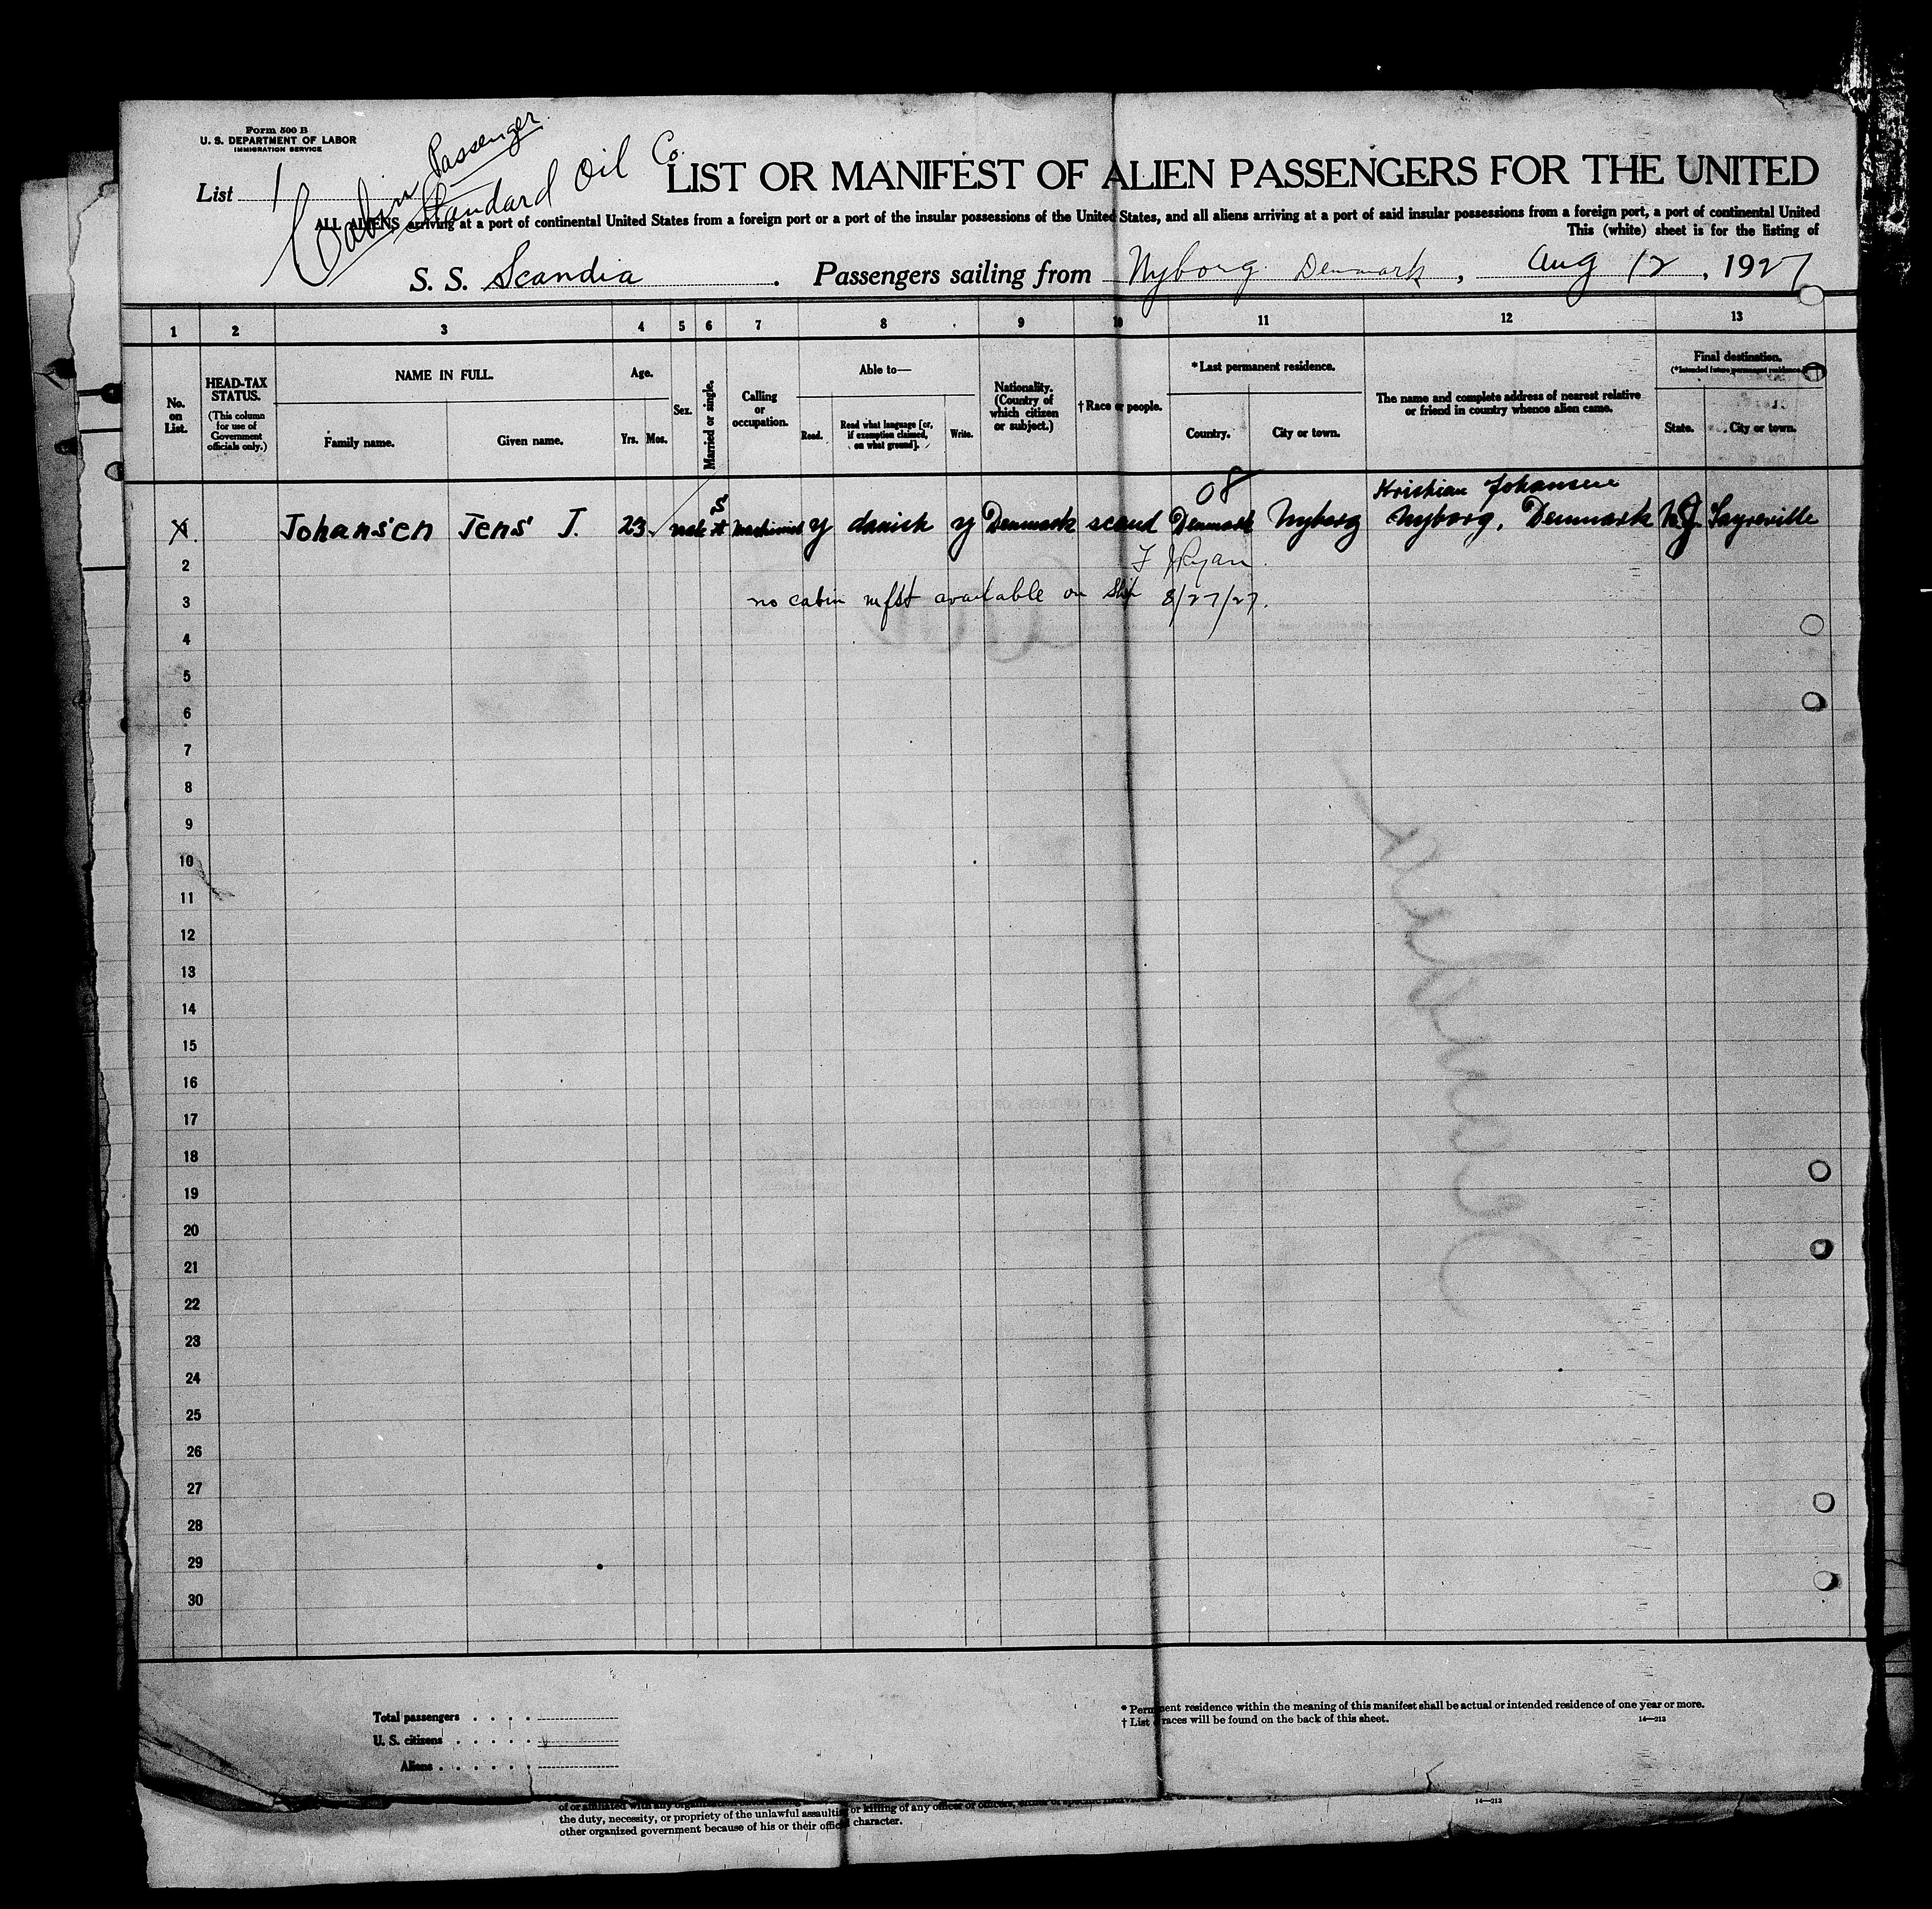 Form 500 B
U. S. DEPARTMENT OF LABOR
IMMIGRATION SERVICE
List 1
Cabin Passenger
Standard Oil Co.
LIST OR MANIFEST OF ALIEN PASSENGERS FOR THE UNITED
ALL ALIENS arriving at a port of continental United States from a foreign port or a port of the insular possessions of the United States, and all aliens arriving at a port of said insular possessions from a foreign port, a port of continental United
This (white) sheet is for the listing of
S. S. Scandia. Passengers sailing from Nyborg Denmark, Aug 12, 1927
1 2 3 4 5 6 7 8 9 10 11 12 13
No. on List.
HEAD-TAX STATUS.
(This column for use of Government officials only.)
NAME IN FULL.
Family name. Given name.
Age.
Yrs. Mos.
Sex.
Married or single.
Calling or occupation.
Able to—
Read. Read what language [or, if exemption claimed, on what ground]. Write.
Nationality. (Country of which citizen or subject.)
† Race or people.
* Last permanent residence.
Country. City or town.
The name and complete address of nearest relative or friend in country whence alien came.
Final destination.
(* Intended future permanent residence.)
State. City or town.
08
Kristian Johansen
1 Johansen Jens J. 23 male S Machinist y danish y Denmark scand Denmark Nyborg Nyborg, Denmark NJ Sayreville
2 Ryan
3 no cabin mfst available on Ship 8/27/27.
4
5
6
7
8
9
10
11
12
13
14
15
16
17
18
19
20
21
22
23
24
25
26
27
28
29
30
Total passengers
U. S. citizens
Aliens
* Permanent residence within the meaning of this manifest shall be actual or intended residence of one year or more.
† List races will be found on the back of this sheet.
14—213
14—213
the duty, necessity, or propriety of the unlawful assaulting or killing of any officer or officers,
other organized government because of his or their official character.